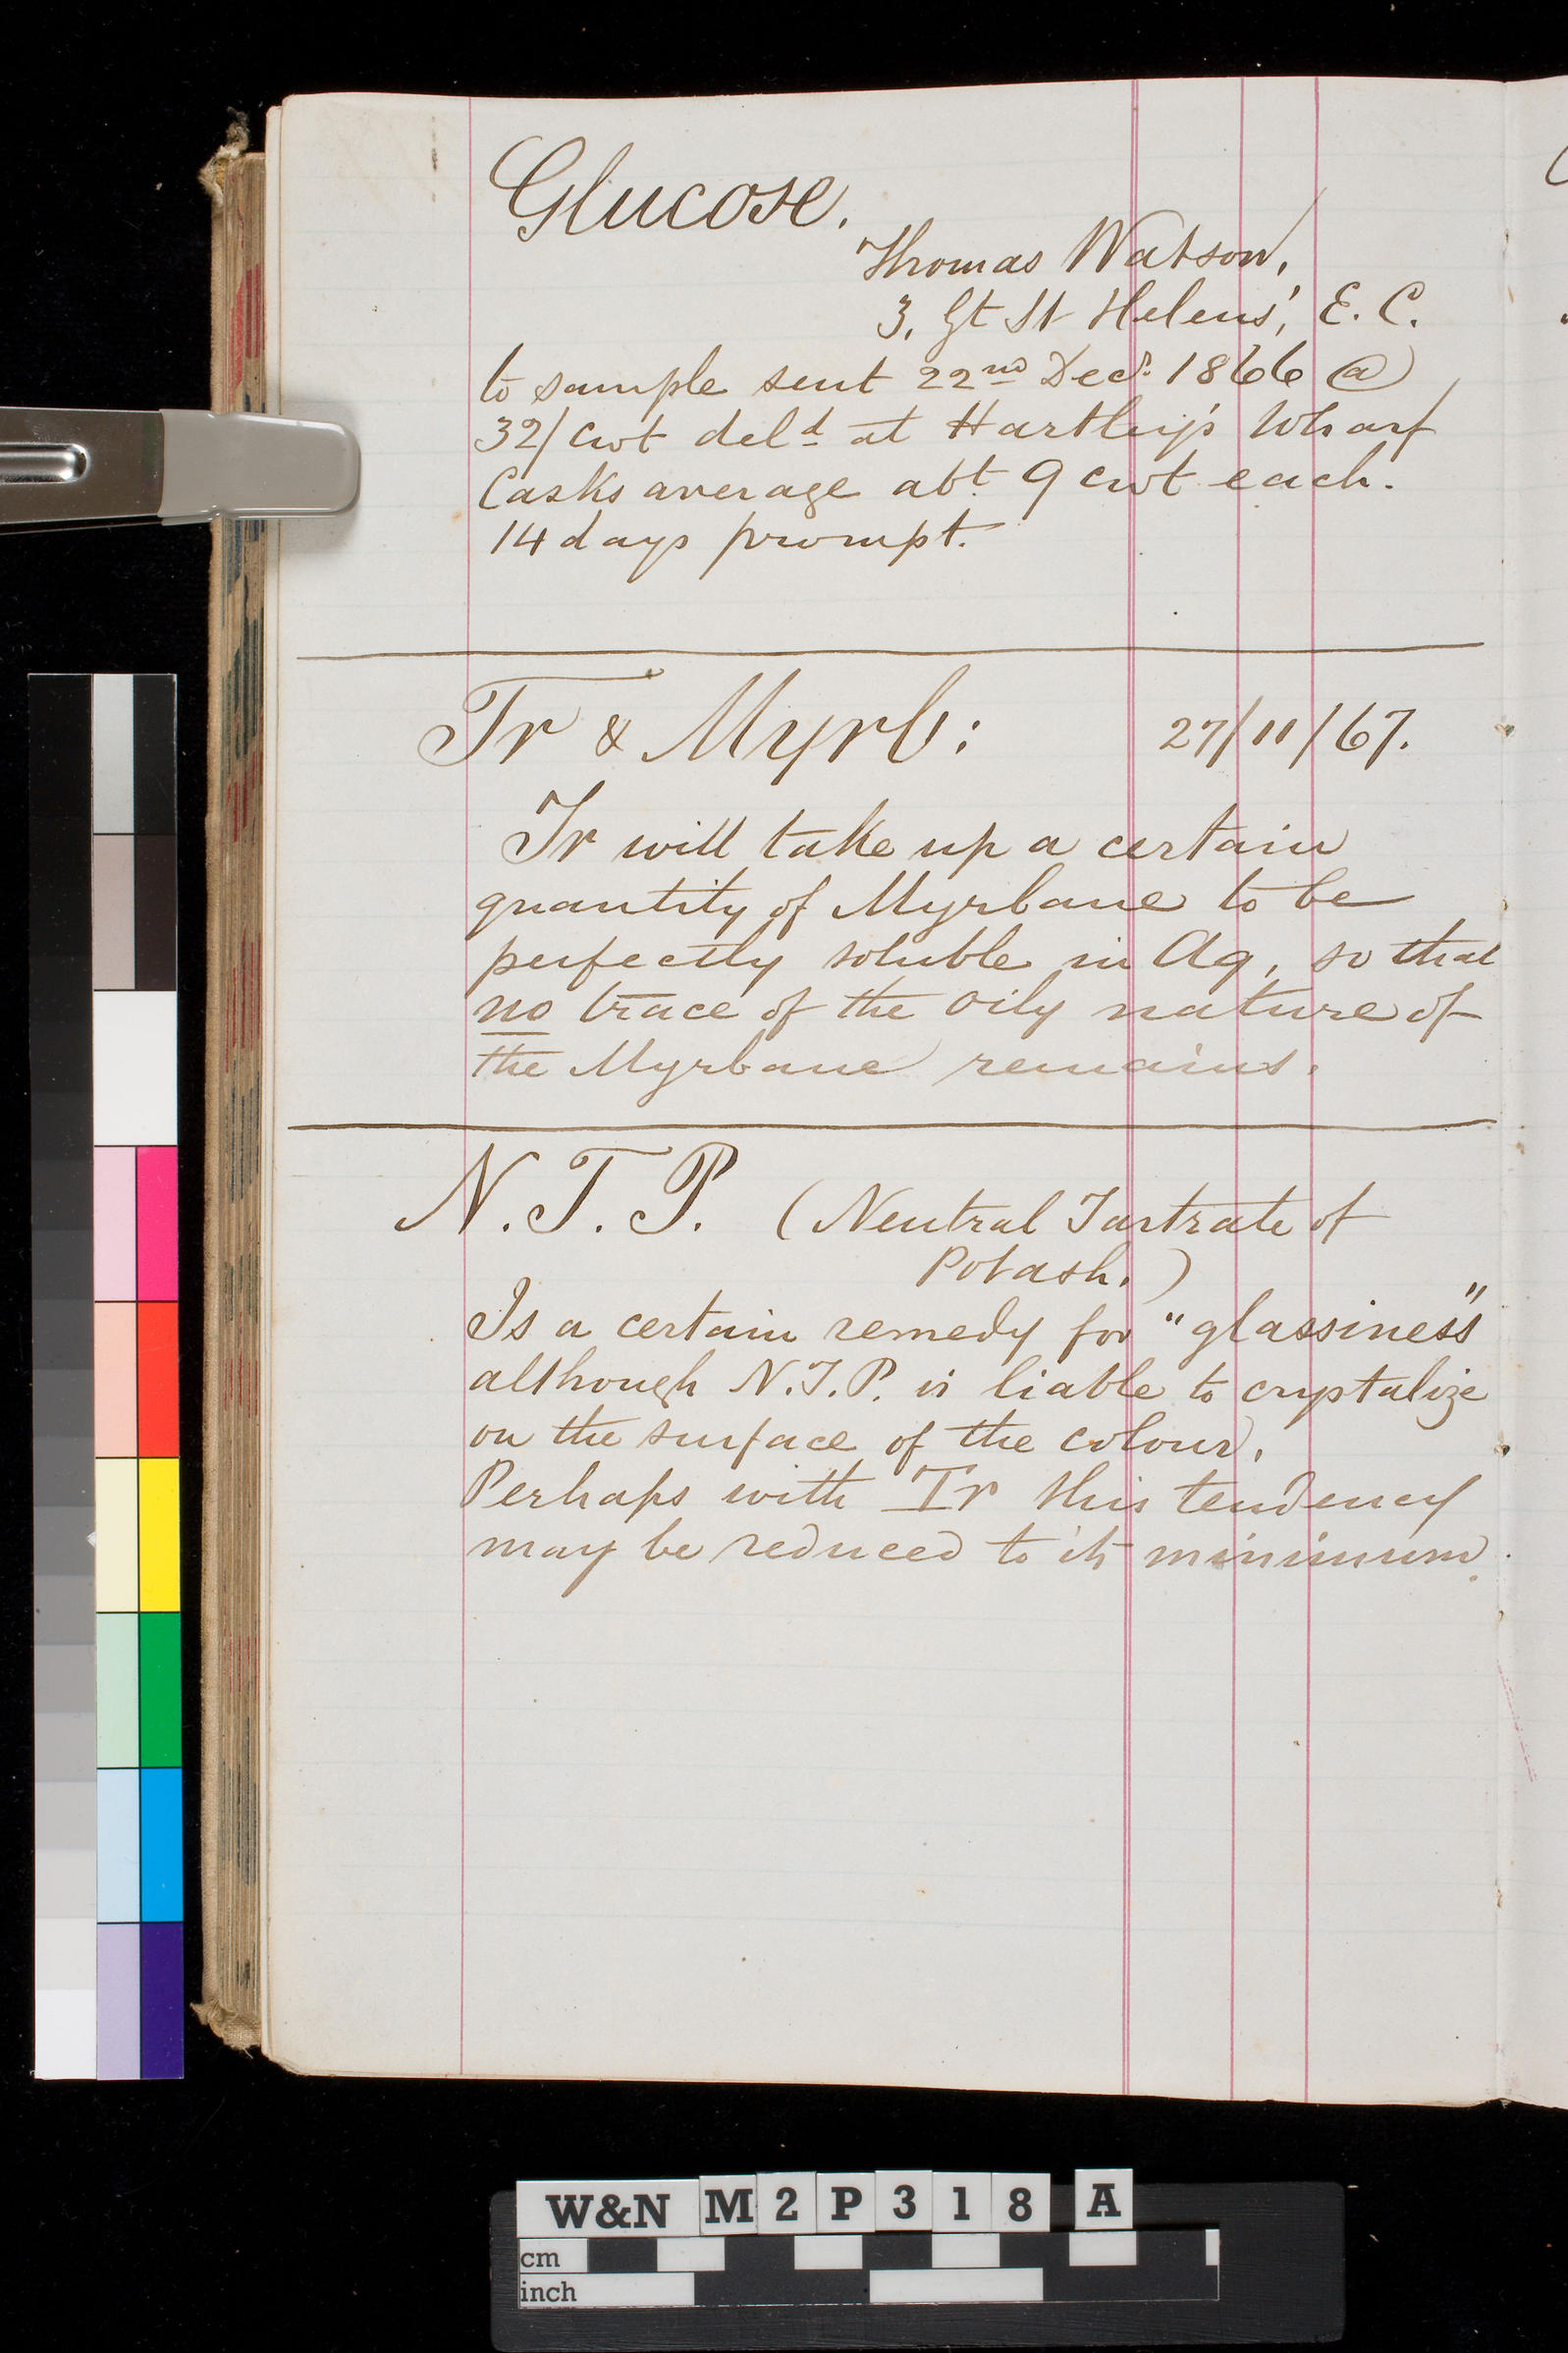 Glucose.
Thomas Watson,
3, Gt St Helens', E. C.
to sample sent 22nd Decr. 1866 @
32/ cwt deld at Hartley's Wharf
Casks average abt. 9 cwt each.
14 days prompt.
Tr & Myrb: 27/11/67.
Tr will take up a certain
quantity of Myrbane to be
perfectly soluble in Aq, so that
no trace of the oily nature of
the Myrbane remains.
N. T. P. (Neutral Tartrate of
Potash.)
Is a certain remedy for "glassiness"
although N.T.P. is liable to crystalize
on the surface of the colour.
Perhaps with Tr this tendency
may be reduced to its minimum.
W&N M2P318 A
cm
inch